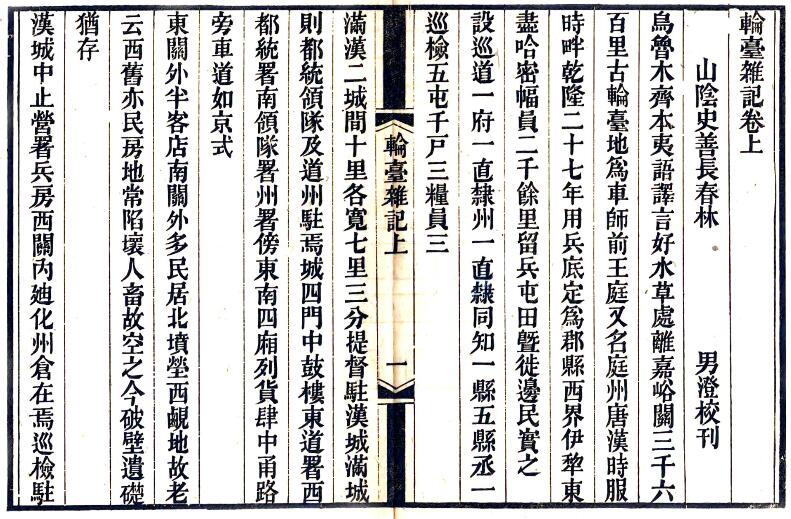 輪臺雜記卷上
山陰史善長春林 男澄校刊
烏魯木齊本夷語譯言好水草處離嘉峪關三千六
百里古輪臺地爲車師前王庭又名庭州唐漢時服
時畔乾隆二十七年用兵底定爲郡縣西界伊犂東
盡哈密幅員二千餘里留兵屯田曁徙邊民實之
設巡道一府一直隸州一直隸同知一縣五縣丞一
巡檢五屯千戸三糧員三
輪臺雜記上 一
滿漢二城間十里各寬七里三分提督駐漢城滿城
則都統領隊及道州駐焉城四門中鼓樓東道署西
都統署南領隊署州署傍東南四廂列貨肆中甬路
旁車道如京式
東關外半客店南關外多民居北墳塋西覷地故老
云西舊亦民房地常陷壞人畜故空之今破壁遺礎
猶存
漢城中止營署兵房西關內廸化州倉在焉巡檢駐